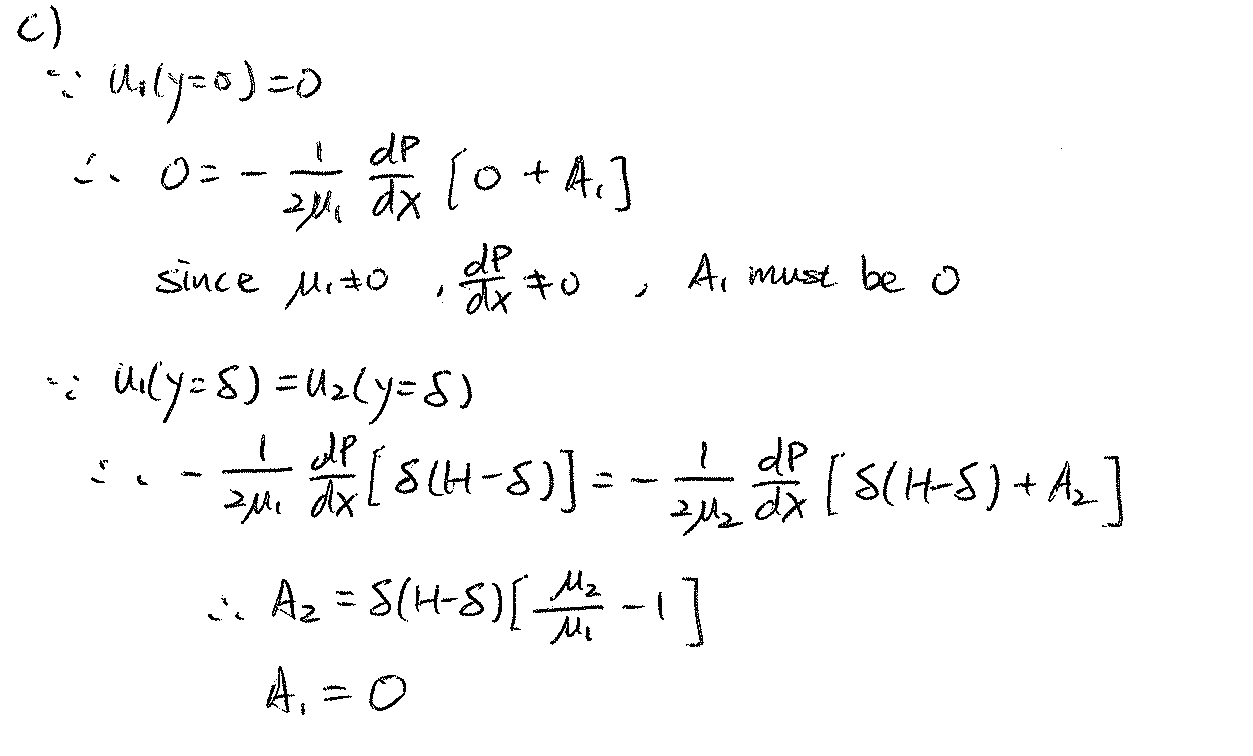 c)
∵ u₁(y=0)=0
∴ 0 = - 1/(2μ₁) dP/dx [0 + A₁]
since μ₁≠0 , dP/dx ≠0 , A₁ must be 0
∵ u₁(y=δ) = u₂(y=δ)
∴ - 1/(2μ₁) dP/dx [δ(H-δ)] = - 1/(2μ₂) dP/dx [δ(H-δ) + A₂]
∴ A₂ = δ(H-δ)[μ₂/μ₁ - 1]
A₁ = 0